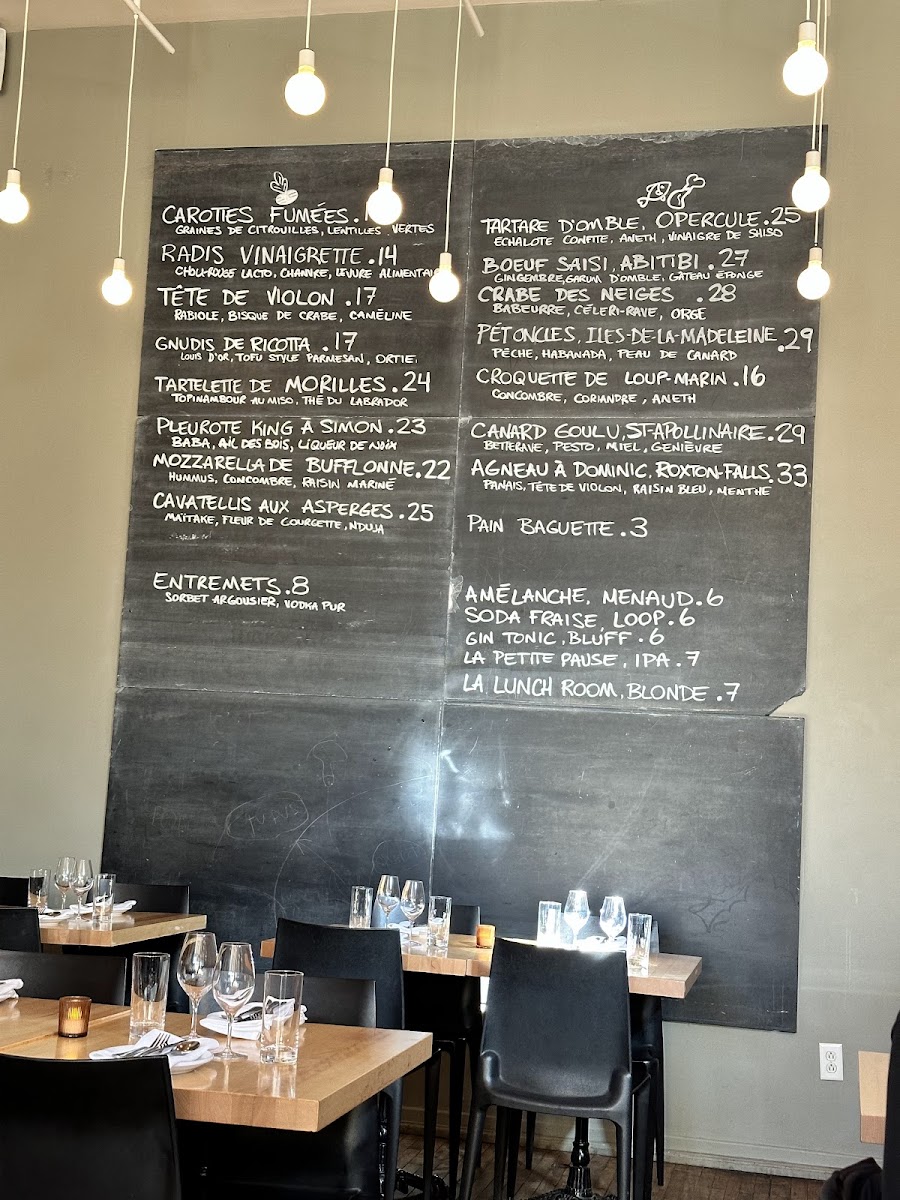 CAROTTES FUMÉES.1
GRAINES DE CITROUILLES, LENTILLES VERTES
RADIS VINAIGRETTE.14
CHOU-ROUGE LACTO, CHANVRE, LEVURE ALIMENTAI
TÊTE DE VIOLON.17
RABIOLE, BISQUE DE CRABE, CAMÉLINE
GNUDIS DE RICOTTA.17
LOUIS D'OR, TOFU STYLE PARMESAN, ORTIE
TARTELETTE DE MORILLES.24
TOPINAMBOUR AU MISO, THÉ DU LABRADOR
PLEUROTE KING À SIMON.23
BABA, AIL DES BOIS, LIQUEUR DE NOIX
MOZZARELLA DE BUFFLONNE.22
HUMMUS, CONCOMBRE, RAISIN MARINÉ
CAVATELLIS AUX ASPERGES.25
MAÏTAKE, FLEUR DE COURGETTE, NDUJA
ENTREMETS.8
SORBET ARGOUSIER, VODKA PUR
TARTARE D'OMBLE, OPERCULE.25
ÉCHALOTE CONFITE, ANETH, VINAIGRE DE SHISO
BOEUF SAISI, ABITIBI.27
GINGEMBRE, GARUM D'OMBLE, GÂTEAU ÉPONGE
CRABE DES NEIGES.28
BABEURRE, CÉLERI-RAVE, ORGE
PÉTONCLES, ILES-DE-LA-MADELEINE.29
PÊCHE, HABANADA, PEAU DE CANARD
CROQUETTE DE LOUP-MARIN.16
CONCOMBRE, CORIANDRE, ANETH
CANARD GOULU, ST-APOLLINAIRE.29
BETTERAVE, PESTO, MIEL, GENIÈVRE
AGNEAU À DOMINIC, ROXTON-FALLS.33
PANAIS, TÊTE DE VIOLON, RAISIN BLEU, MENTHE
PAIN BAGUETTE.3
AMÉLANCHE, MENAUD.6
SODA FRAISE, LOOP.6
GIN TONIC, BLUFF.6
LA PETITE PAUSE, IPA.7
LA LUNCH ROOM, BLONDE.7